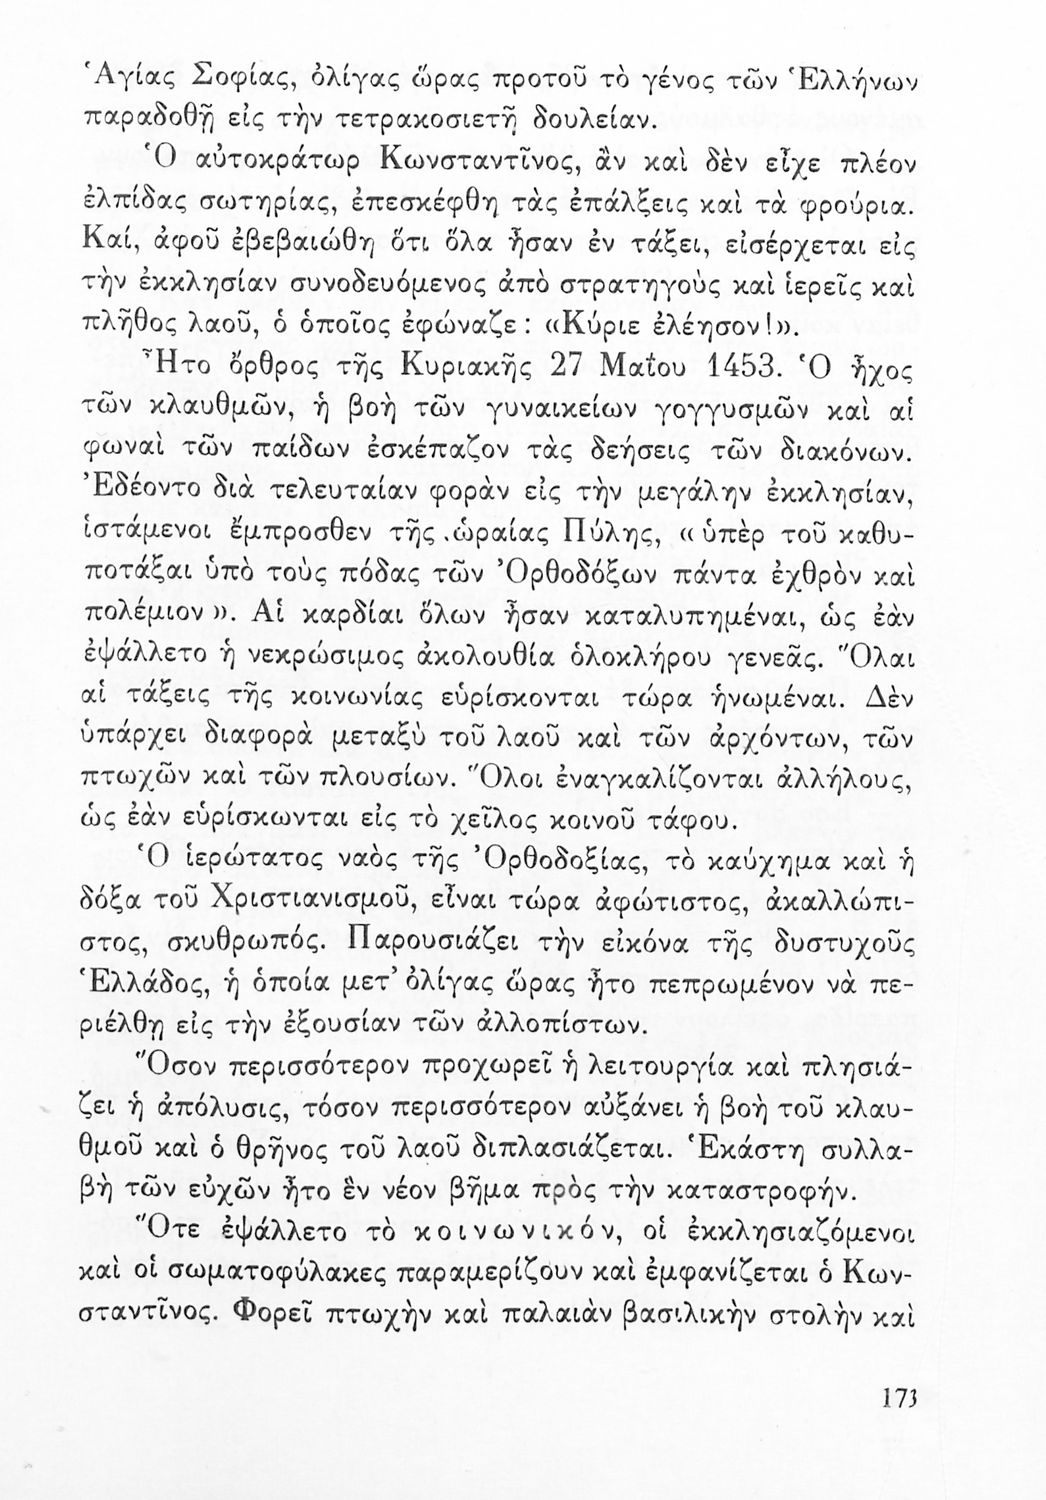 Ἁγίας Σοφίας, ὀλίγας ὥρας προτοῦ τὸ γένος τῶν Ἑλλήνων
παραδοθῇ εἰς τὴν τετρακοσιετῆ δουλείαν.
Ὁ αὐτοκράτωρ Κωνσταντῖνος, ἂν καὶ δὲν εἶχε πλέον
ἐλπίδας σωτηρίας, ἐπεσκέφθη τὰς ἐπάλξεις καὶ τὰ φρούρια.
Καί, ἀφοῦ ἐβεβαιώθη ὅτι ὅλα ἦσαν ἐν τάξει, εἰσέρχεται εἰς
τὴν ἐκκλησίαν συνοδευόμενος ἀπὸ στρατηγοὺς καὶ ἱερεῖς καὶ
πλῆθος λαοῦ, ὁ ὁποῖος ἐφώναζε : «Κύριε ἐλέησον!».
Ἦτο ὄρθρος τῆς Κυριακῆς 27 Μαΐου 1453. Ὁ ἦχος
τῶν κλαυθμῶν, ἡ βοὴ τῶν γυναικείων γογγυσμῶν καὶ αἱ
φωναὶ τῶν παίδων ἐσκέπαζον τὰς δεήσεις τῶν διακόνων.
Ἐδέοντο διὰ τελευταίαν φορὰν εἰς τὴν μεγάλην ἐκκλησίαν,
ἱστάμενοι ἔμπροσθεν τῆς ὡραίας Πύλης, « ὑπὲρ τοῦ καθυ-
ποτάξαι ὑπὸ τοὺς πόδας τῶν Ὀρθοδόξων πάντα ἐχθρὸν καὶ
πολέμιον ». Αἱ καρδίαι ὅλων ἦσαν καταλυπημέναι, ὡς ἐὰν
ἐψάλλετο ἡ νεκρώσιμος ἀκολουθία ὁλοκλήρου γενεᾶς. Ὅλαι
αἱ τάξεις τῆς κοινωνίας εὑρίσκονται τώρα ἡνωμέναι. Δὲν
ὑπάρχει διαφορὰ μεταξὺ τοῦ λαοῦ καὶ τῶν ἀρχόντων, τῶν
πτωχῶν καὶ τῶν πλουσίων. Ὅλοι ἐναγκαλίζονται ἀλλήλους,
ὡς ἐὰν εὑρίσκωνται εἰς τὸ χεῖλος κοινοῦ τάφου.
Ὁ ἱερώτατος ναὸς τῆς Ὀρθοδοξίας, τὸ καύχημα καὶ ἡ
δόξα τοῦ Χριστιανισμοῦ, εἶναι τώρα ἀφώτιστος, ἀκαλλώπι-
στος, σκυθρωπός. Παρουσιάζει τὴν εἰκόνα τῆς δυστυχοῦς
Ἑλλάδος, ἡ ὁποία μετ' ὀλίγας ὥρας ἦτο πεπρωμένον νὰ πε-
ριέλθῃ εἰς τὴν ἐξουσίαν τῶν ἀλλοπίστων.
Ὅσον περισσότερον προχωρεῖ ἡ λειτουργία καὶ πλησιά-
ζει ἡ ἀπόλυσις, τόσον περισσότερον αὐξάνει ἡ βοὴ τοῦ κλαυ-
θμοῦ καὶ ὁ θρῆνος τοῦ λαοῦ διπλασιάζεται. Ἑκάστη συλλα-
βὴ τῶν εὐχῶν ἦτο ἓν νέον βῆμα πρὸς τὴν καταστροφήν.
Ὅτε ἐψάλλετο τὸ κοινωνικόν, οἱ ἐκκλησιαζόμενοι
καὶ οἱ σωματοφύλακες παραμερίζουν καὶ ἐμφανίζεται ὁ Κων-
σταντῖνος. Φορεῖ πτωχὴν καὶ παλαιὰν βασιλικὴν στολὴν καὶ
173